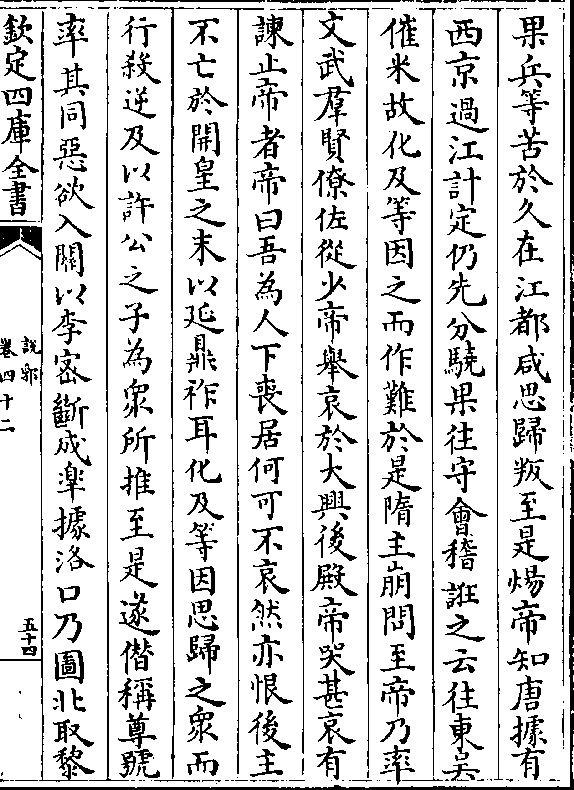 果兵等苦於久在江都咸思歸叛至是煬帝知唐據有
西京過江計定仍先分驍果往守會稽誑之云往東吳
催米故化及等因之而作難於是隋主崩問至帝乃率
文武羣賢僚佐從少帝舉哀於大興後殿帝哭甚哀有
諫止帝者帝曰吾為人下喪居何可不哀然亦恨後主
不亡於開皇之末以延鼎祚耳化及等因思歸之衆而
行殺逆及以許公之子為衆所推至是遂僭稱尊號
率其同惡欲入關以李密斷成臯據洛口乃圖北取黎
欽定四庫全書
說郛
卷四十二
五十四